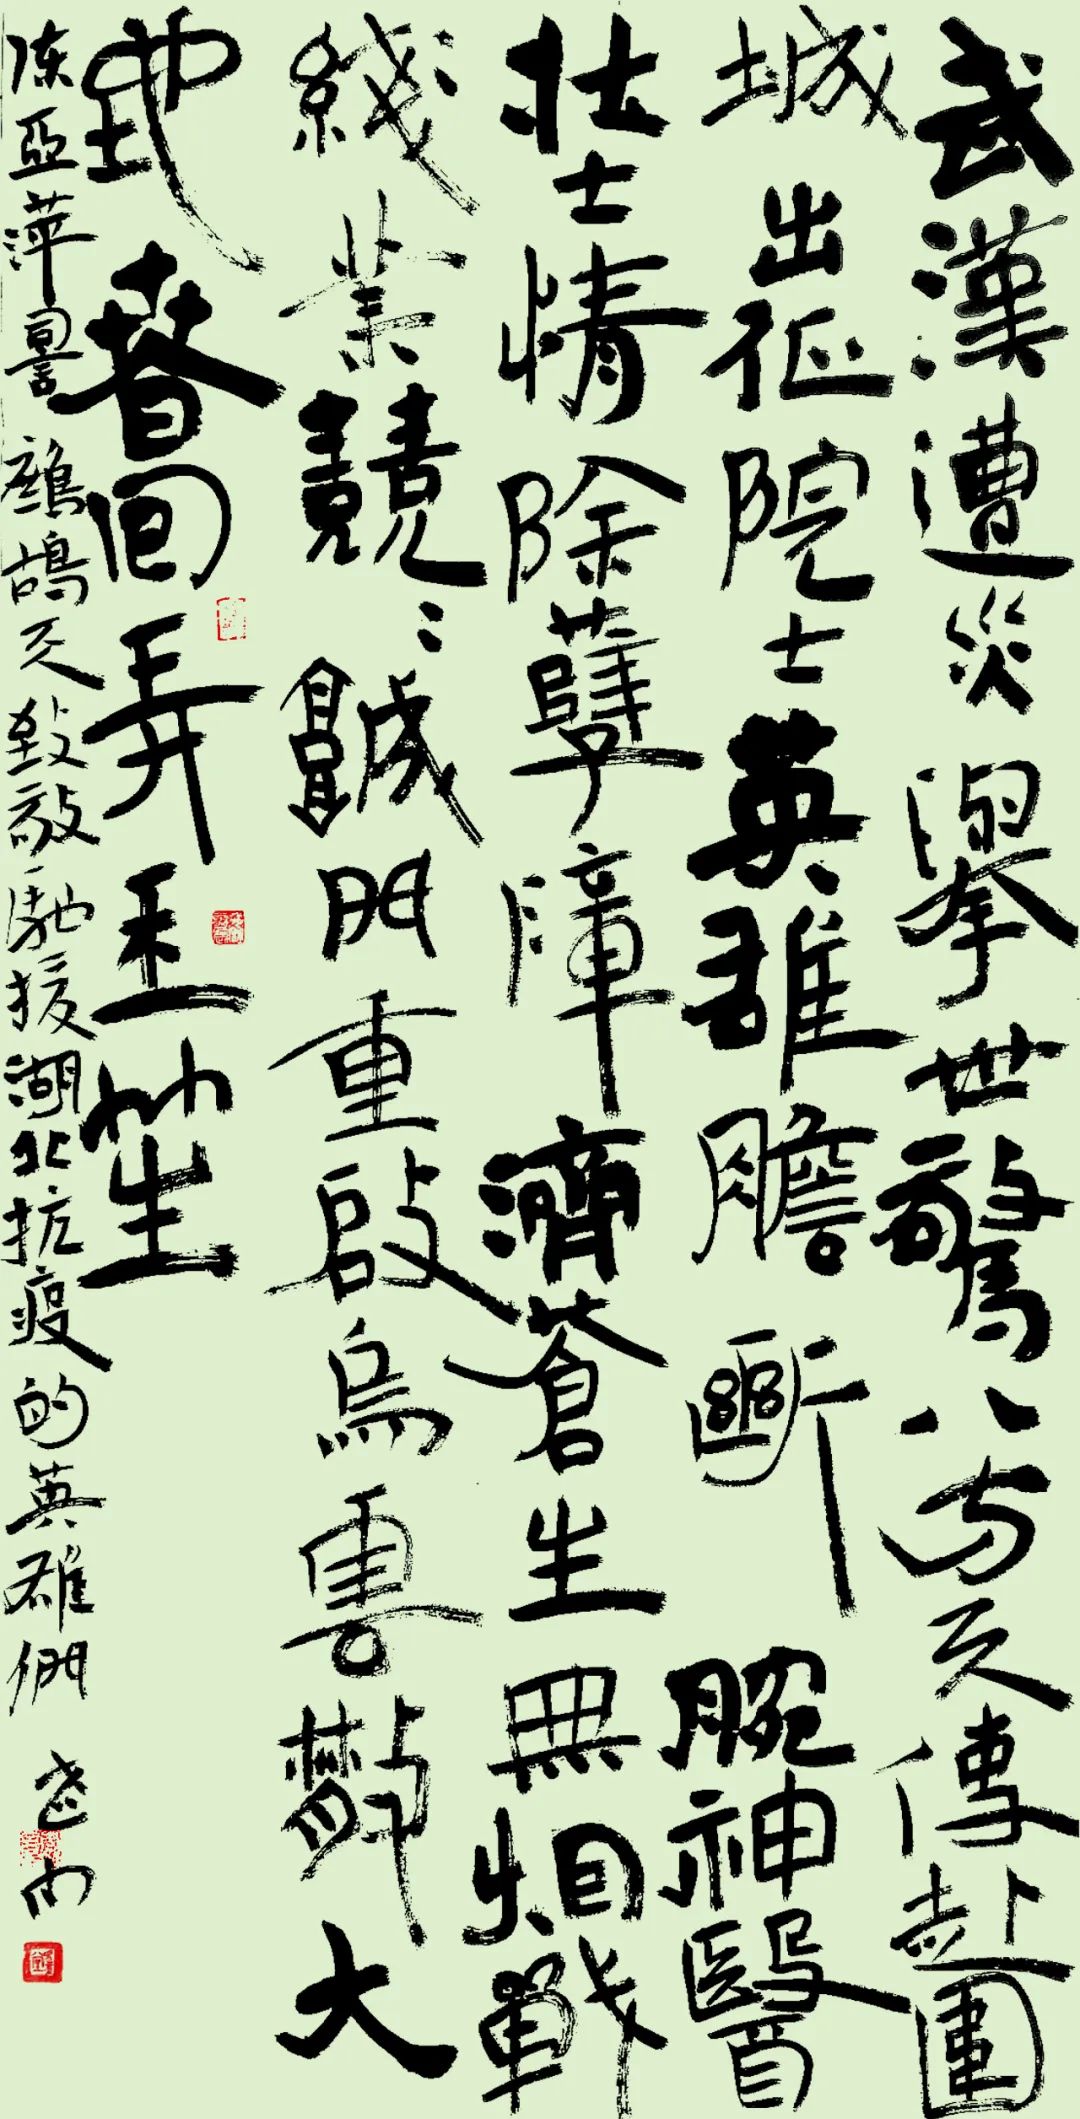 武漢遭災擧世驚八方天使赴圍
城出征院士英雄膽斷腕神醫
壯士情除孽障濟蒼生無烟戰
綫業兢〻城門重啟烏雲散大
地春回弄玉笙
陈亞萍詞鷓鴣天致敬馳援湖北抗疫的英雄們